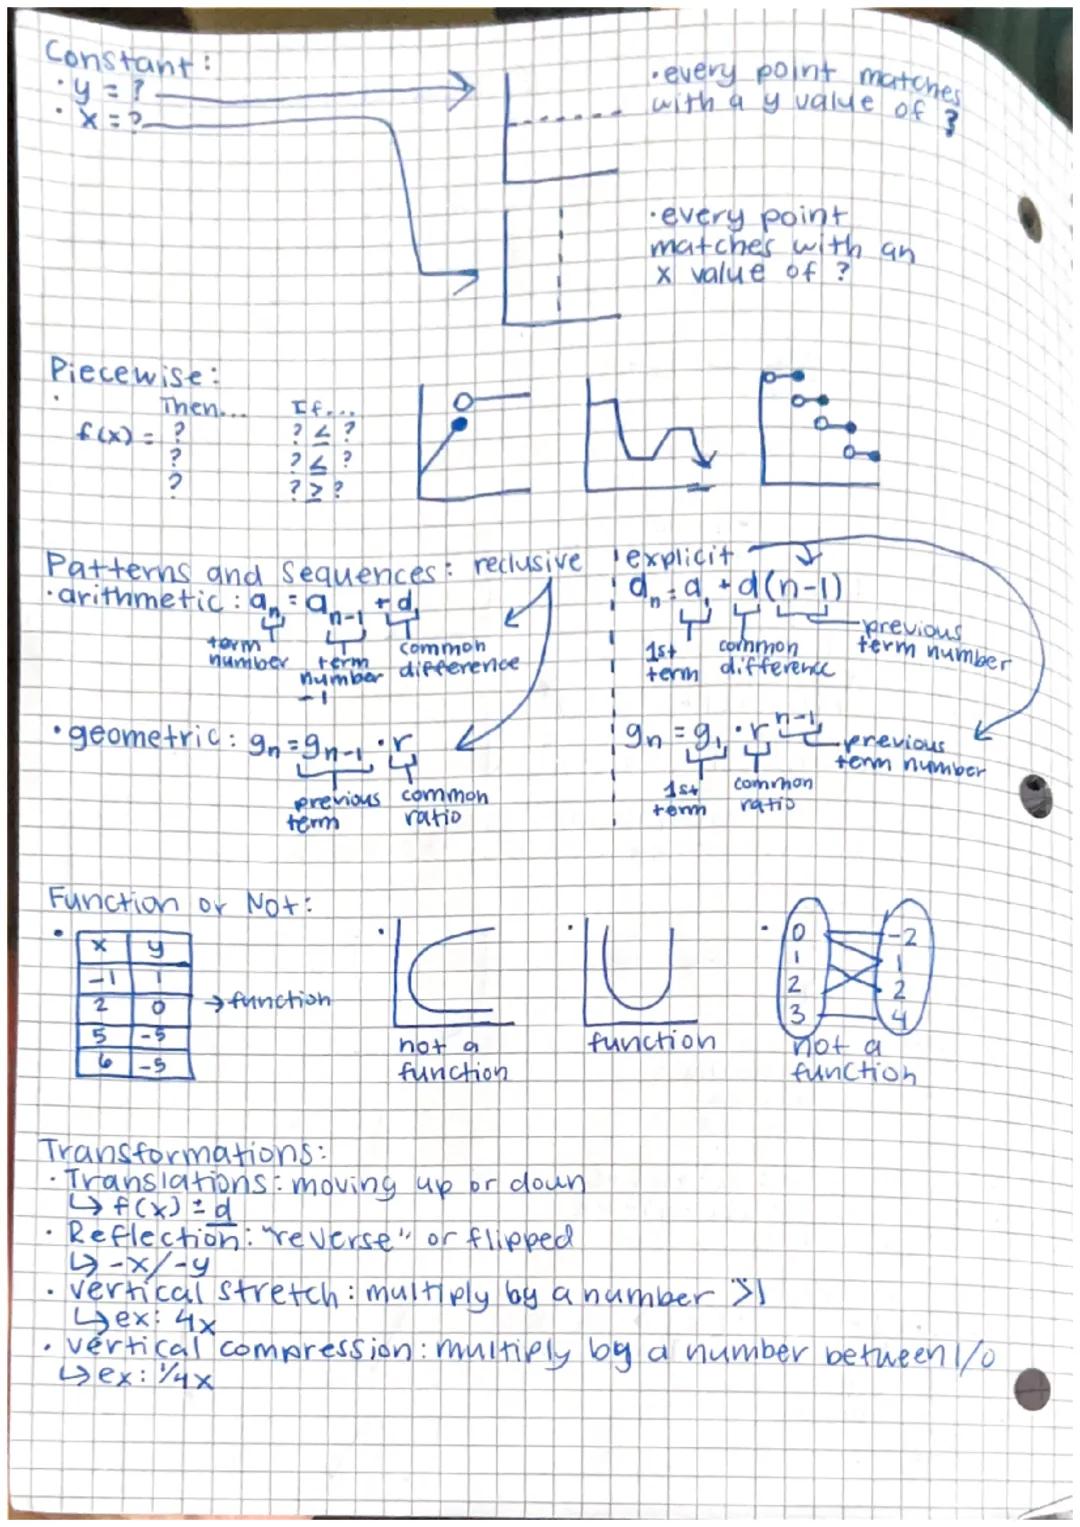 Constant:
· y = ?
· x = ?
· every point matches
with a y value of ?
· every point
matches with an
x value of ?
Piecewise:
Then... If...
f(x) = ? ? ≤ ?
? ? ≤ ?
? ? ≥ ?
Patterns and Sequences: reclusive
· arithmetic: aₙ = aₙ₋₁ + d
term
number
term
number
-1
common
difference
explicit
aₙ = a₁ + d(n-1)
1st
term
common
difference
previous
term number
· geometric: gₙ = gₙ₋₁ · r
previous
term
common
ratio
gₙ = g₁ · rⁿ⁻¹
1st
term
common
ratio
previous
term number
Function or Not:
x y
-1 1
2 0
5 -5
6 -5
→ function
not a
function
function
0 -2
1 1
2 2
3 4
not a
function
Transformations:
· Translations: moving up or down
↳ f(x) ± d
· Reflection: "reverse" or flipped
↳ -x/-y
· vertical stretch: multiply by a number >1
↳ ex: 4x
· vertical compression: multiply by a number between 1/0
↳ ex: 1/4x